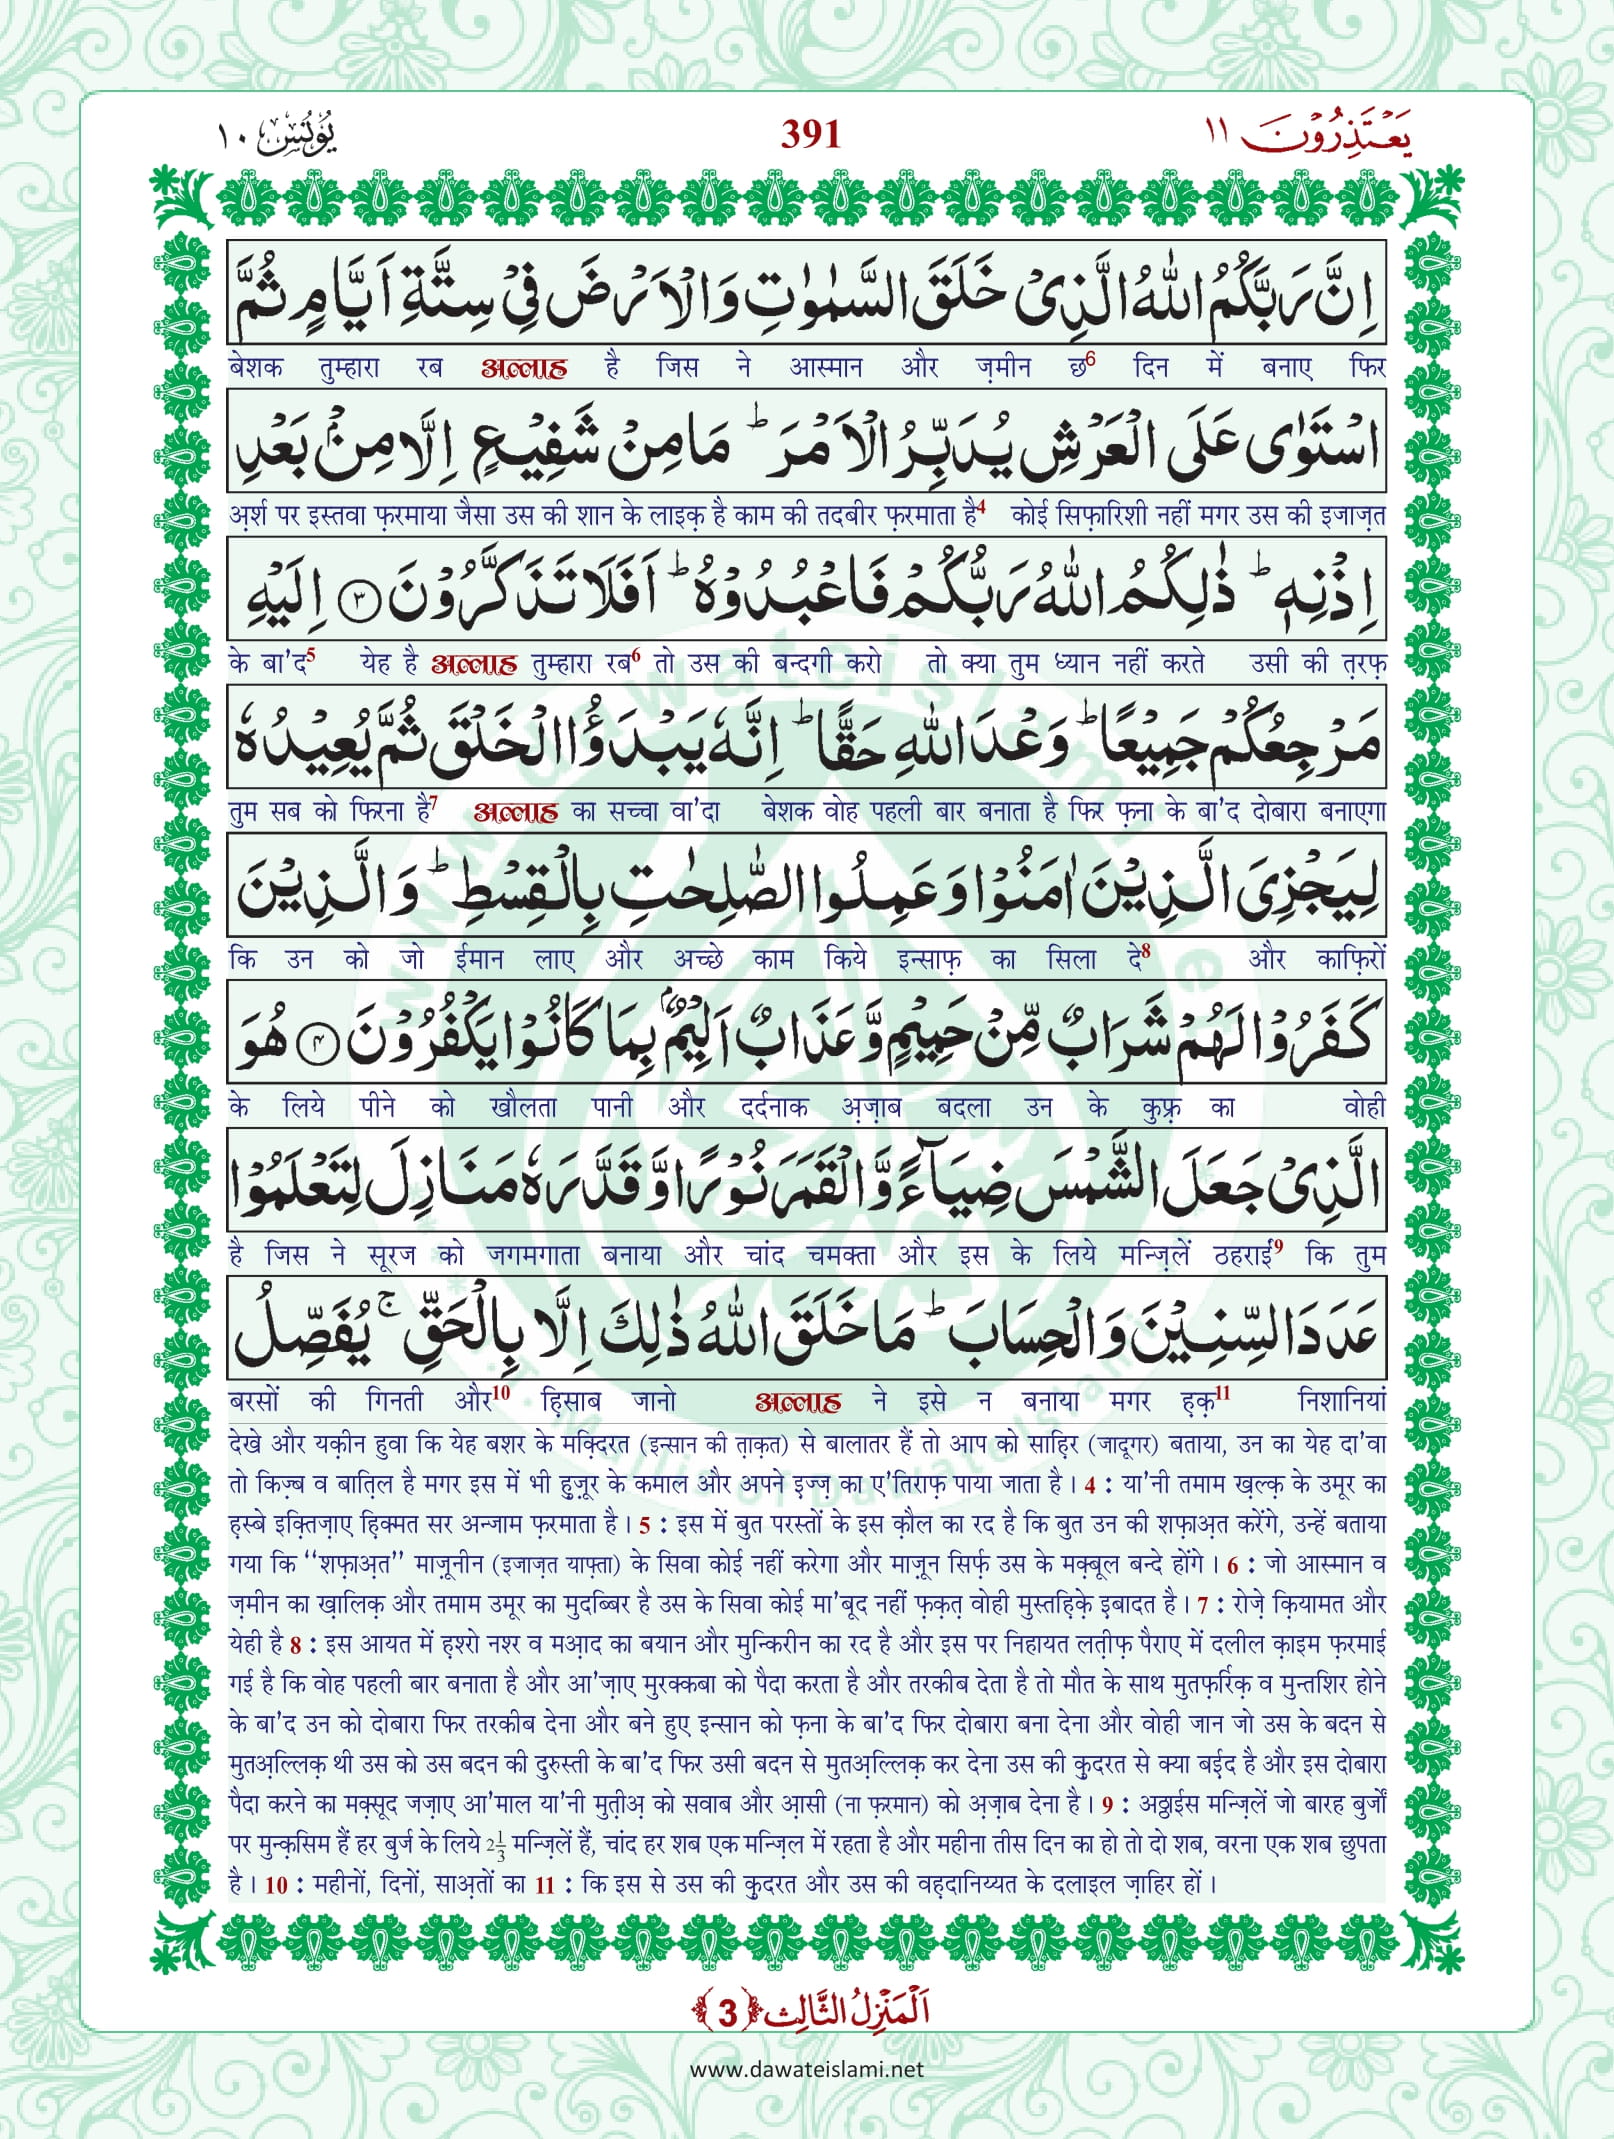 يَعْتَذِرُوْنَ ١١
391
يُوْنُس ١٠
اِنَّ رَبَّكُمُ اللّٰهُ الَّذِیْ خَلَقَ السَّمٰوٰتِ وَ الْاَرْضَ فِیْ سِتَّةِ اَیَّامٍ ثُمَّ
बेशक तुम्हारा रब अल्लाह है जिस ने आस्मान और ज़मीन छ6 दिन में बनाए फिर
اسْتَوٰى عَلَى الْعَرْشِ یُدَبِّرُ الْاَمْرَؕ مَا مِنْ شَفِیْعٍ اِلَّا مِنْۢ بَعْدِ
अ़र्श पर इस्तवा फ़रमाया जैसा उस की शान के लाइक़ है काम की तदबीर फ़रमाता है4 कोई सिफ़ारिशी नहीं मगर उस की इजाज़त
اِذْنِهٖؕ ذٰلِكُمُ اللّٰهُ رَبُّكُمْ فَاعْبُدُوْهُؕ اَفَلَا تَذَكَّرُوْنَ ﴿٣﴾ اِلَیْهِ
के बा'द5 येह है अल्लाह तुम्हारा रब6 तो उस की बन्दगी करो तो क्या तुम ध्यान नहीं करते उसी की त़रफ़
مَرْجِعُكُمْ جَمِیْعًاؕ وَعْدَ اللّٰهِ حَقًّاؕ اِنَّهٗ یَبْدَؤُا الْخَلْقَ ثُمَّ یُعِیْدُهٗ
तुम सब को फिरना है7 अल्लाह का सच्चा वा'दा बेशक वोह पहली बार बनाता है फिर फ़ना के बा'द दोबारा बनाएगा
لِیَجْزِیَ الَّذِیْنَ اٰمَنُوْا وَ عَمِلُوا الصّٰلِحٰتِ بِالْقِسْطِؕ وَ الَّذِیْنَ
कि उन को जो ईमान लाए और अच्छे काम किये इन्साफ़ का सिला दे8 और काफ़िरों
كَفَرُوْا لَهُمْ شَرَابٌ مِّنْ حَمِیْمٍ وَّ عَذَابٌ اَلِیْمٌۢ بِمَا كَانُوْا یَكْفُرُوْنَ ﴿٤﴾ هُوَ
के लिये पीने को खौलता पानी और दर्दनाक अ़ज़ाब बदला उन के कुफ़्र का वोही
الَّذِیْ جَعَلَ الشَّمْسَ ضِیَآءً وَّ الْقَمَرَ نُوْرًا وَّ قَدَّرَهٗ مَنَازِلَ لِتَعْلَمُوْا
है जिस ने सूरज को जगमगाता बनाया और चांद चमक्ता और इस के लिये मन्ज़िलें ठहराईं9 कि तुम
عَدَدَ السِّنِیْنَ وَ الْحِسَابَؕ مَا خَلَقَ اللّٰهُ ذٰلِكَ اِلَّا بِالْحَقِّۚ یُفَصِّلُ
बरसों की गिनती और10 हि़साब जानो अल्लाह ने इसे न बनाया मगर ह़क़11 निशानियां
देखे और यक़ीन हुवा कि येह बशर के मक़्दिरत (इन्सान की त़ाक़त) से बालातर हैं तो आप को साहि़र (जादूगर) बताया, उन का येह दा'वा
तो किज़्ब व बात़िल है मगर इस में भी हु़ज़ूर के कमाल और अपने इज्ज़ का ए'तिराफ़ पाया जाता है। 4 : या'नी तमाम ख़ल्क़ के उमूर का
ह़स्बे इक़्तिज़ाए हि़क्मत सर अन्जाम फ़रमाता है। 5 : इस में बुत परस्तों के इस क़ौल का रद है कि बुत उन की शफ़ाअ़त करेंगे, उन्हें बताया
गया कि ‘‘शफ़ाअ़त’’ माज़ूनीन (इजाज़त याफ़्ता) के सिवा कोई नहीं करेगा और माज़ून सिर्फ़ उस के मक़्बूल बन्दे होंगे। 6 : जो आस्मान व
ज़मीन का ख़ालिक़ और तमाम उमूर का मुदब्बिर है उस के सिवा कोई मा'बूद नहीं फ़क़त़ वोही मुस्तहि़क़े इ़बादत है। 7 : रोज़े क़ियामत और
येही है 8 : इस आयत में ह़श्रो नश्र व मआ़द का बयान और मुन्किरीन का रद है और इस पर निहायत लत़ीफ़ पैराए में दलील क़ाइम फ़रमाई
गई है कि वोह पहली बार बनाता है और आ'ज़ाए मुरक्कबा को पैदा करता है और तरकीब देता है तो मौत के साथ मुतफ़र्रिक़ व मुन्तशिर होने
के बा'द उन को दोबारा फिर तरकीब देना और बने हुए इन्सान को फ़ना के बा'द फिर दोबारा बना देना और वोही जान जो उस के बदन से
मुतअ़ल्लिक़ थी उस को उस बदन की दुरुस्ती के बा'द फिर उसी बदन से मुतअ़ल्लिक़ कर देना उस की क़ुदरत से क्या बई़द है और इस दोबारा
पैदा करने का मक़्सूद जज़ाए आ'माल या'नी मुत़ीअ़ को सवाब और आ़सी (ना फ़रमान) को अ़ज़ाब देना है। 9 : अठ्ठाईस मन्ज़िलें जो बारह बुर्जों
पर मुन्क़सिम हैं हर बुर्ज के लिये 2 1/3 मन्ज़िलें हैं, चांद हर शब एक मन्ज़िल में रहता है और महीना तीस दिन का हो तो दो शब, वरना एक शब छुपता
है। 10 : महीनों, दिनों, साअ़तों का 11 : कि इस से उस की क़ुदरत और उस की वह़दानिय्यत के दलाइल ज़ाहिर हों।
اَلْمَنْزِلُ الثَّالِث ﴿3﴾
www.dawateislami.net